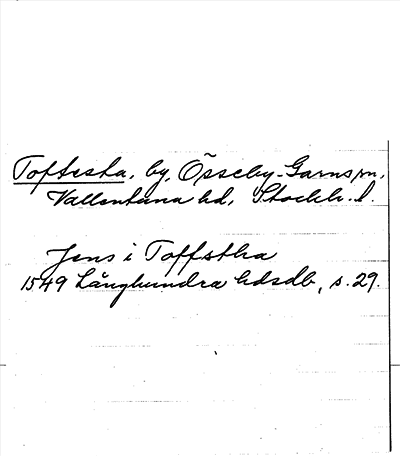 Toftesta, by, Össeby-Garns sn,
Vallentuna hd, Stockh. l.
Jens i Toffstha
1549 Långhundra hdsdb, s. 29.